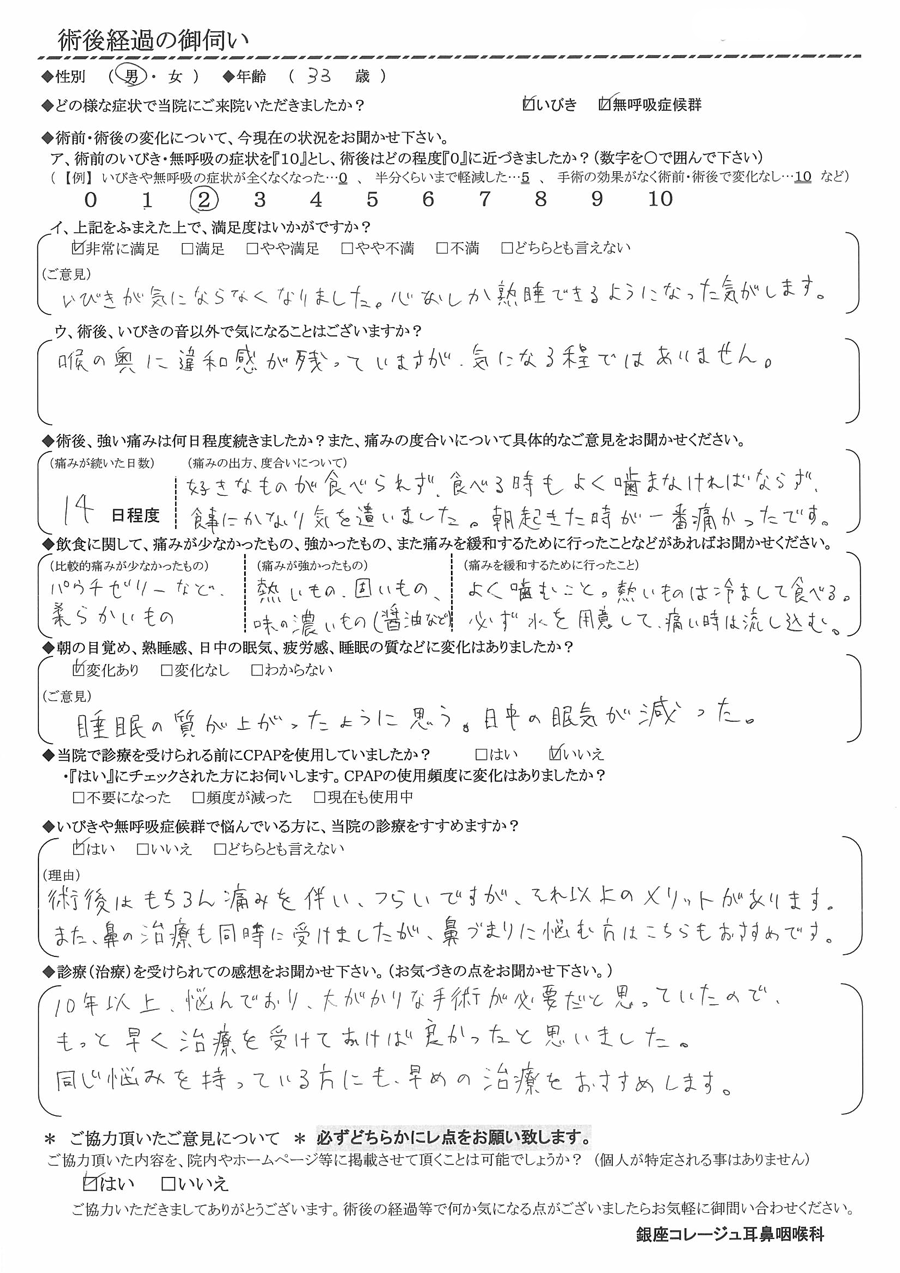 術後経過の御伺い
◆性別 (男・女) ◆年齢 (33 歳)
◆どの様な症状で当院にご来院いただきましたか? ☑いびき ☑無呼吸症候群
◆術前・術後の変化について、今現在の状況をお聞かせ下さい。
ア、術前のいびき・無呼吸の症状を『10』とし、術後はどの程度『0』に近づきましたか?(数字を〇で囲んで下さい)
(【例】いびきや無呼吸の症状が全くなくなった…0 、 半分くらいまで軽減した…5 、 手術の効果がなく術前・術後で変化なし…10 など)
0 1 2 3 4 5 6 7 8 9 10
イ、上記をふまえた上で、満足度はいかがですか?
☑非常に満足 □満足 □やや満足 □やや不満 □不満 □どちらとも言えない
(ご意見)
いびきが気にならなくなりました。心なしか熟睡できるようになった気がします。
ウ、術後、いびきの音以外で気になることはございますか?
喉の奥に違和感が残っていますが、気になる程ではありません。
◆術後、強い痛みは何日程度続きましたか?また、痛みの度合いについて具体的なご意見をお聞かせください。
(痛みが続いた日数) (痛みの出方、度合いについて)
好きなものが食べられず、食べる時もよく噛まなければならず、
14 日程度 食事にかなり気を遣いました。朝起きた時が一番痛かったです。
◆飲食に関して、痛みが少なかったもの、強かったもの、また痛みを緩和するために行ったことなどがあればお聞かせください。
(比較的痛みが少なかったもの) (痛みが強かったもの) (痛みを緩和するために行ったこと)
パウチゼリーなど、 熱いもの、固いもの、 よく噛むこと。熱いものは冷まして食べる。
柔らかいもの 味の濃いもの(醤油など) 必ず水を用意して、痛い時は流し込む。
◆朝の目覚め、熟睡感、日中の眠気、疲労感、睡眠の質などに変化はありましたか?
☑変化あり □変化なし □わからない
(ご意見)
睡眠の質が上がったように思う。日中の眠気が減った。
◆当院で診療を受けられる前にCPAPを使用していましたか? □はい ☑いいえ
・『はい』にチェックされた方にお伺いします。CPAPの使用頻度に変化はありましたか?
□不要になった □頻度が減った □現在も使用中
◆いびきや無呼吸症候群で悩んでいる方に、当院の診療をすすめますか?
☑はい □いいえ □どちらとも言えない
(理由)
術後はもちろん痛みを伴い、つらいですが、それ以上のメリットがあります。
また、鼻の治療も同時に受けましたが、鼻づまりに悩む方はこちらもおすすめです。
◆診療(治療)を受けられての感想をお聞かせ下さい。(お気づきの点をお聞かせ下さい。)
10年以上、悩んでおり、大がかりな手術が必要だと思っていたので、
もっと早く治療を受けておけば良かったと思いました。
同じ悩みを持っている方にも、早めの治療をおすすめします。
＊ ご協力頂いたご意見について ＊ 必ずどちらかにレ点をお願い致します。
ご協力頂いた内容を、院内やホームページ等に掲載させて頂くことは可能でしょうか? (個人が特定される事はありません)
☑はい □いいえ
ご協力いただきましてありがとうございます。術後の経過等で何か気になる点がございましたらお気軽に御問い合わせください。
銀座コレージュ耳鼻咽喉科